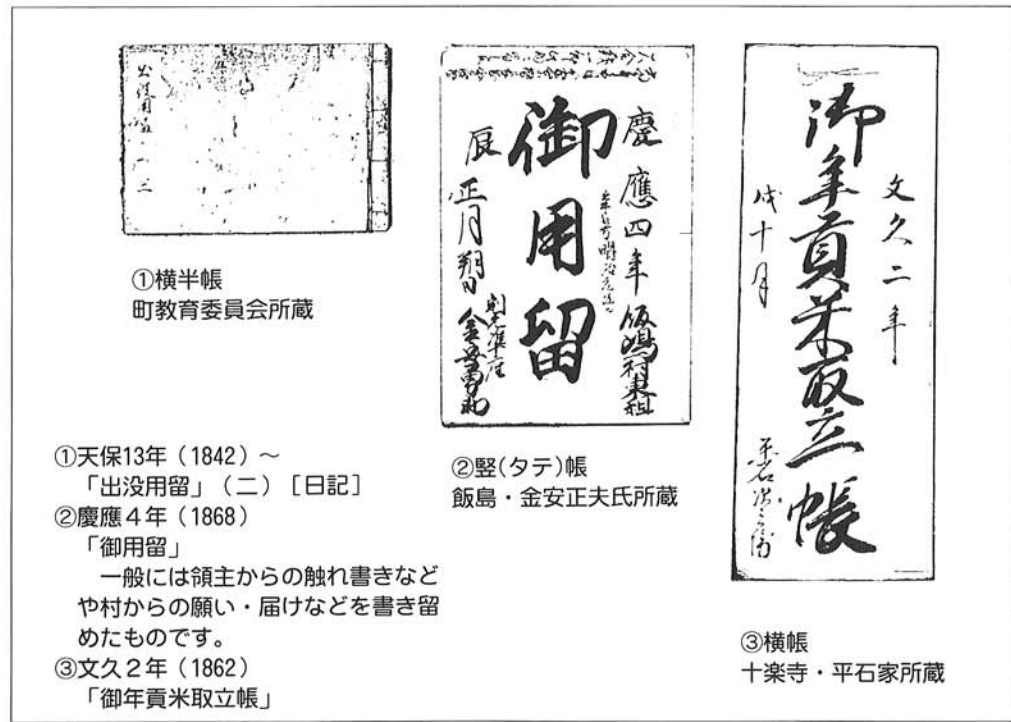 出没用留 二
①横半帳
町教育委員会所蔵
慶應四年 飯嶋村東組
御用留
辰正月朔日
②竪(タテ)帳
飯島・金安正夫氏所蔵
文久二年
御年貢米取立帳
戌十月
③横帳
十楽寺・平石家所蔵
①天保13年(1842)~
「出没用留」(二)[日記]
②慶應4年(1868)
「御用留」
一般には領主からの触れ書きなど
や村からの願い・届けなどを書き留
めたものです。
③文久2年(1862)
「御年貢米取立帳」